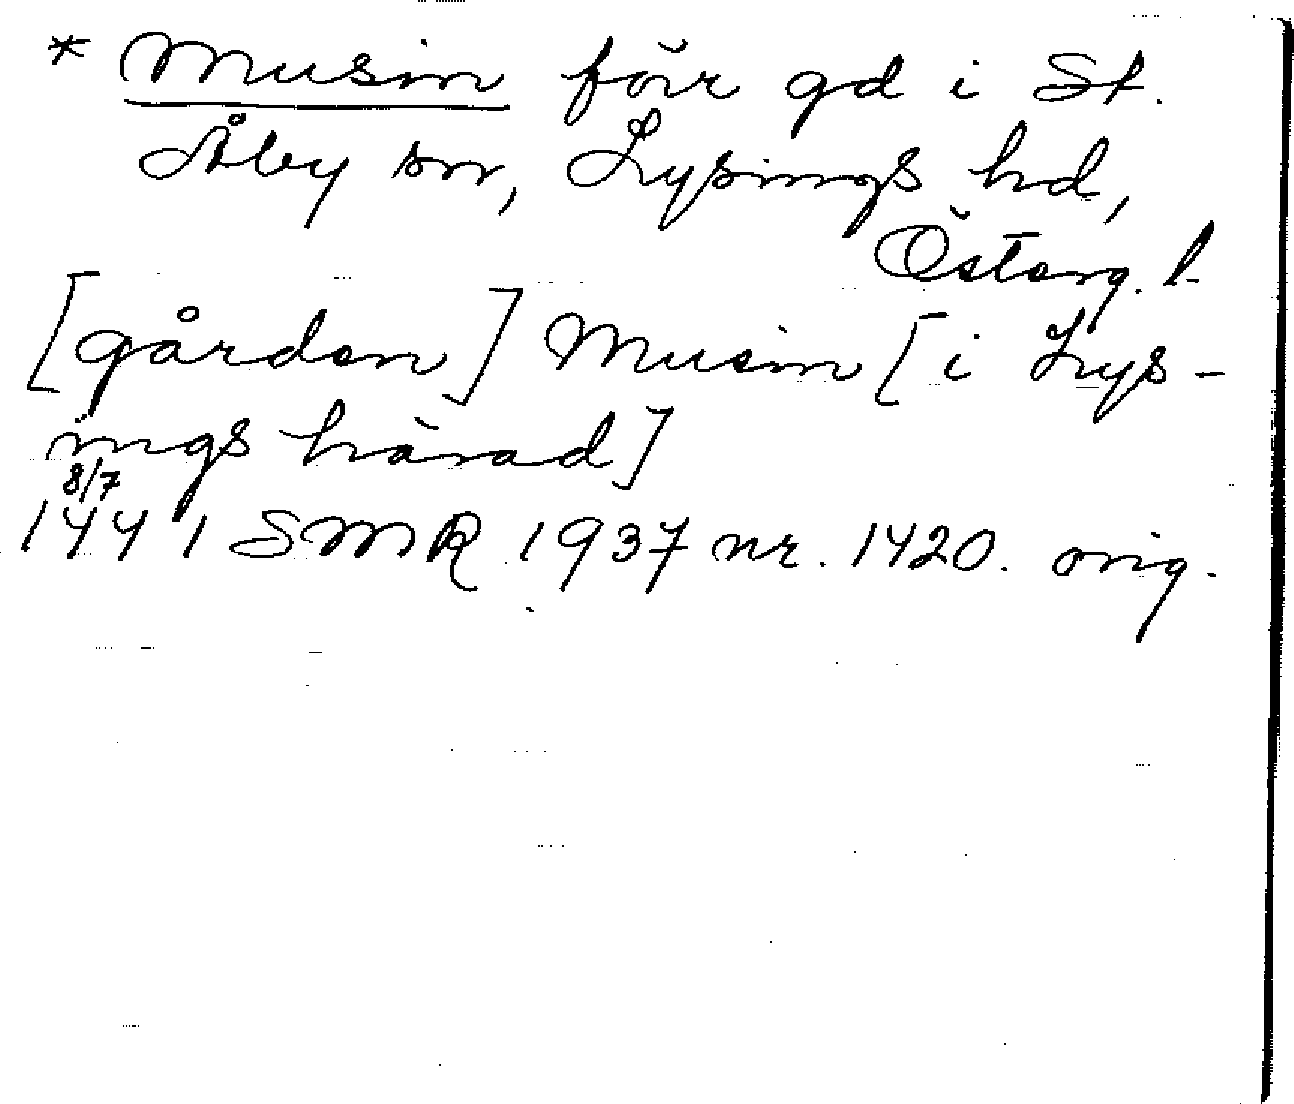 * Musin förr gd i St.
Åby sn, Lysings hd,
Österg. l.
[gården] Musin [i Lys-
ings härad]
8/7
1441 SMR 1937 nr. 1420. orig.